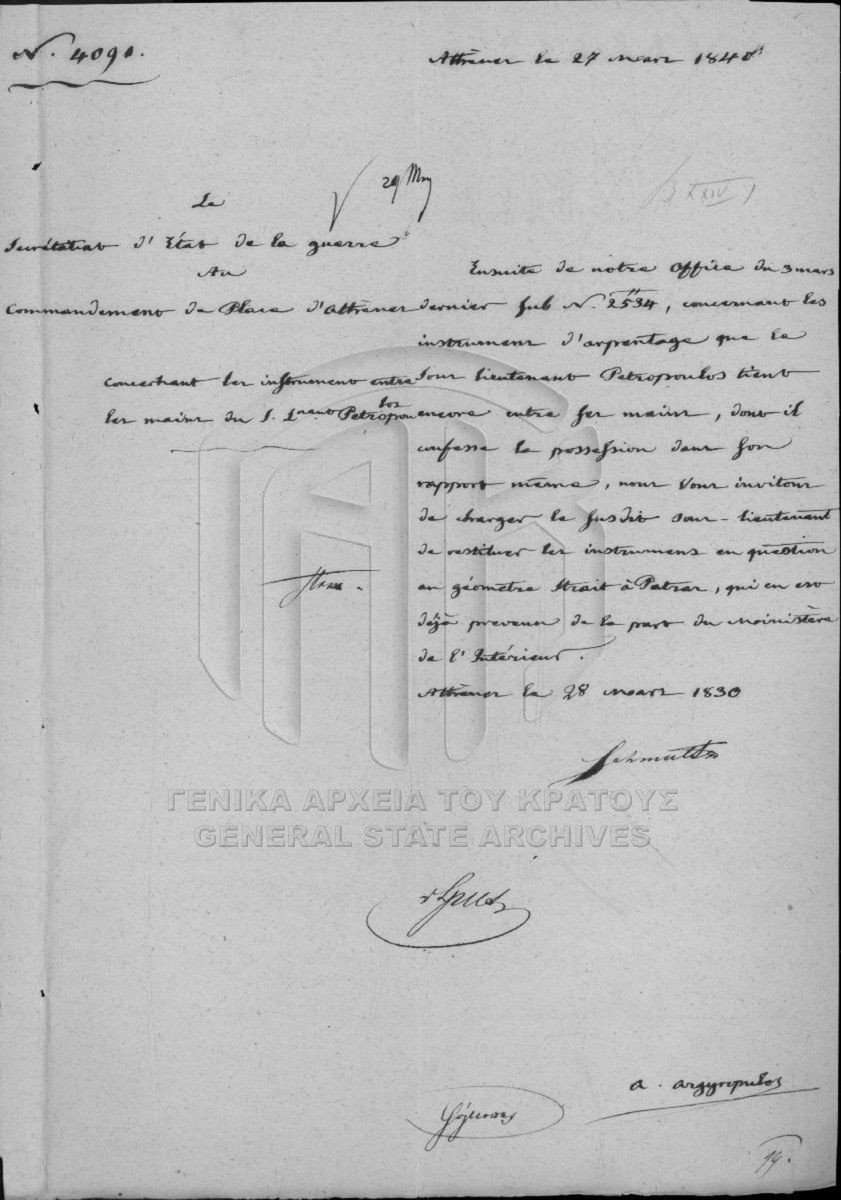 N. 4091.
Athènes le 27 Mars 1840
29 Mrz
B XXIV 1
Le
Secrétariat d'État de la guerre
Au
Commandement de Place d'Athènes
concernant les instrument entre
les mains du S. Lnant Petropoulos
Ensuite de notre Office du 3 mars
dernier sub N. 2534, concernant les
instrument d'arpentage que le
Sous lieutenant Petropoulos tient
encore entre ses mains, dont il
confesse la possession dans son
rapport même, nous Vous invitons
de charger le susdit sous-lieutenant
de restituer les instrumens en question
au géomètre Strait à Patras, qui en est
déjà prevenu de la part du Moinistère
de l'Intérieur.
Athènes le 28 Mars 1830
Schmaltz
A. Argyropulos
ΓΕΝΙΚΑ ΑΡΧΕΙΑ ΤΟΥ ΚΡΑΤΟΥΣ
GENERAL STATE ARCHIVES